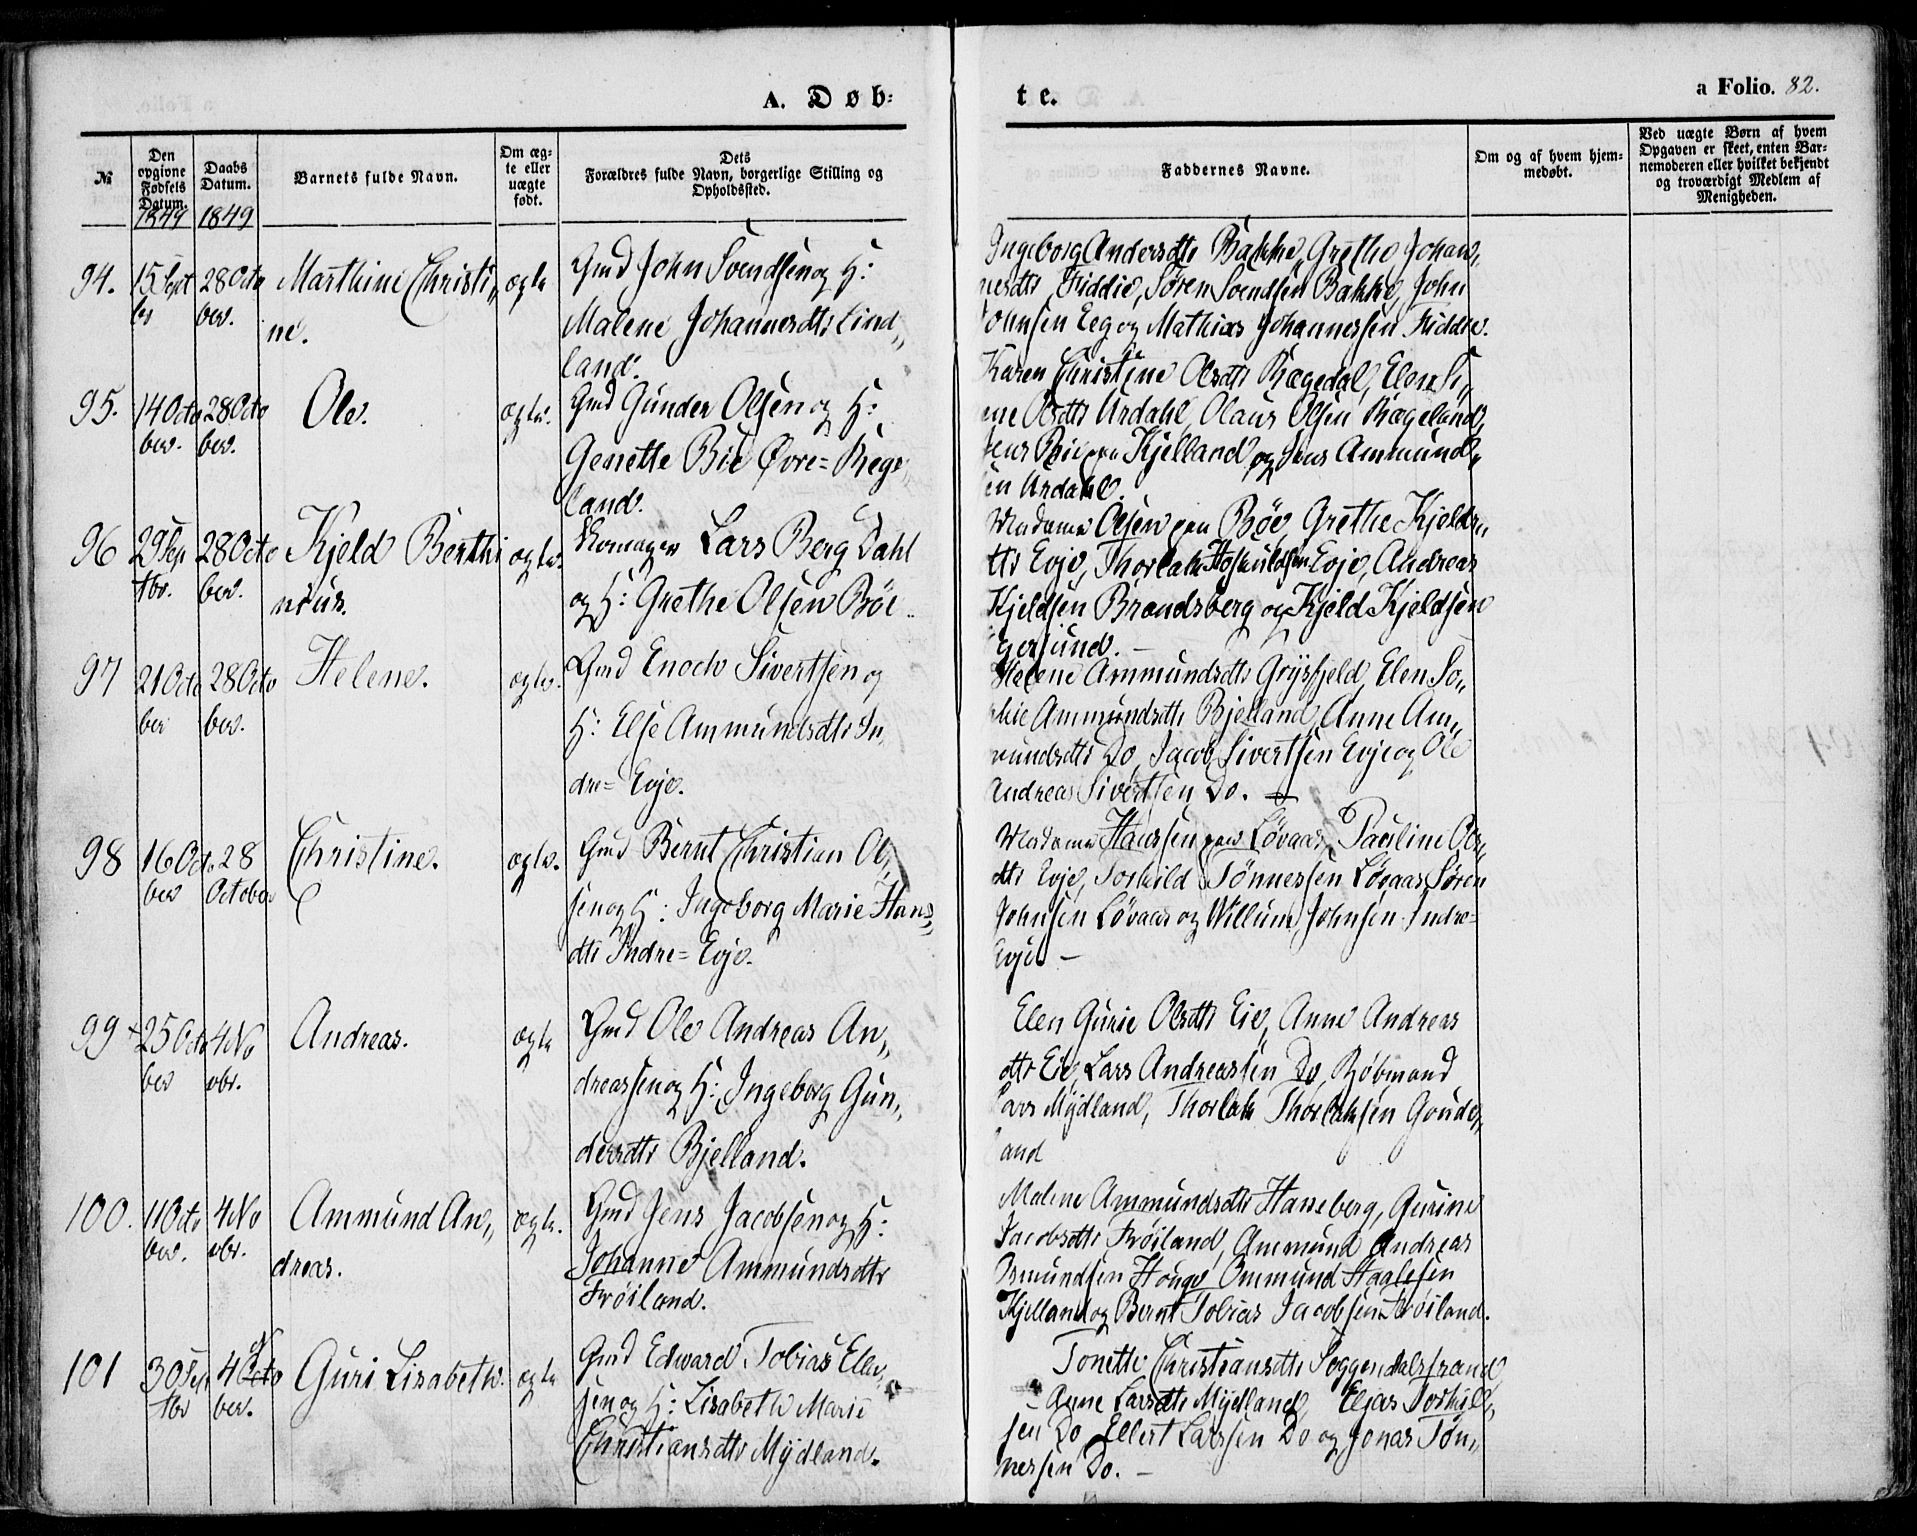 A. Døb-
te.
a Folio. 82.
№
Den opgivne Fødsels Datum.
1849
Daabs Datum.
1849
Barnets fulde Navn.
Om ægte eller uægte født.
Dets
Forældres fulde Navn, borgerlige Stilling og Opholdssted.
Faddernes Navne.
Om og af hvem hjemmedøbt.
Ved uægte Børn af hvem Opgaven er skeet, enten Barnemoderen eller hvilket bekjendt og troværdigt Medlem af Menigheden.
94. 15 Sept 28 Octo Marthine Christi„ ægte Gmd John Svendsen og H:
ber ber. ne. Malene Johannesdtr Lind„
land.
Ingeborg Andersdtr Bakke, Grethe Johan„
nesdtr Fiddie, Søren Svendsen Bakke, John
Johnsen Eeg og Mathias Johannessen Fiddie.
95. 14 Octo 28 Octo Ole. ægte. Gmd Gunder Olsen og H:
ber. ber. Genette Bie Øvre=Rege„
land.
Karen Christine Olsdtr Rægedal, Elen Si„
ne Olsdtr Urdahl, Olaus Olsen Rægeland,
Jens paa Kjelland og Jens Ammund„
sen Urdahl.
96 29 Sep 28 Octo Kjeld Berthi ægte. Lars Berg Dahl
tbr. ber. nius. og H: Grethe Olsen Böe
Madame Olsen paa Böe, Grethe Kjelds„
dtr Evje, Thorlak Hoskuldsen Evje, Andreas
Kjeldsen Brandsberg og Kjeld Kjeldsen
Egersund. —
97 21 Octo 28 Octo Helene. ægte. Gmd Enoch Sivertsen og
ber ber. H: Else Ammundsdtr In„
dre=Evje.
Helene Ammundsdtr Grysfjeld, Elen So„
phie Ammundsdtr Bjelland, Anne Am„
mundsdtr Do, Jacob Sivertsen Evje og Ole
Andreas Sivertsen Do. —
98 16 Octo 28 Christine. ægte. Gmd Bernt Christian Ol„
ber October sen og H: Ingeborg Marie Hans„
dtr Indre=Evje.
Madame Hanssen paa Løvaas, Pauline Ols„
dtr Evje, Torkild Tönnessen Løvaas, Søren
Johnsen Løvaas og Willum Johnsen Indre=
Evje —
99 + 25 Octo 4 No Andreas. ægte Gmd Ole Andreas An„
ber vbr. dreassen og H: Ingeborg Gun„
dersdtr Bjelland.
Elen Gurie Olsdtr Eie, Anne Andreas
dtr Eie, Lars Andreassen Do, Røbmand
Lars Mydland, Thorlak Thorlaksen Goude„
land
100. 11 Octo 4 No Ammund An„ ægte. Gmd Jens Jacobsen og H:
ber. vbr. dreas. Johanne Ammundsdtr
Fröiland.
Malene Ammundsdtr Hanneberg, Gurine
Jacobsdtr Fröiland, Ammund Andreas
Osmundsen Houge, Ommund Haalesen
Kjelland og Bernt Tobias Jacobsen Fröiland.
101 30 Sept 4 Octo Guri Lisabeth. ægte Gmd Edward Tobias Elen„
tbr ber. sen og H: Lisabeth Marie
Christiansdtr Mydland.
Tonette Christiansdtr Soggendalstrand
Anne Larsdtr Mydland, Elias Torkyll„
sen Do, Ellert Larssen Do og Jonas Tön„
nessen Do. —